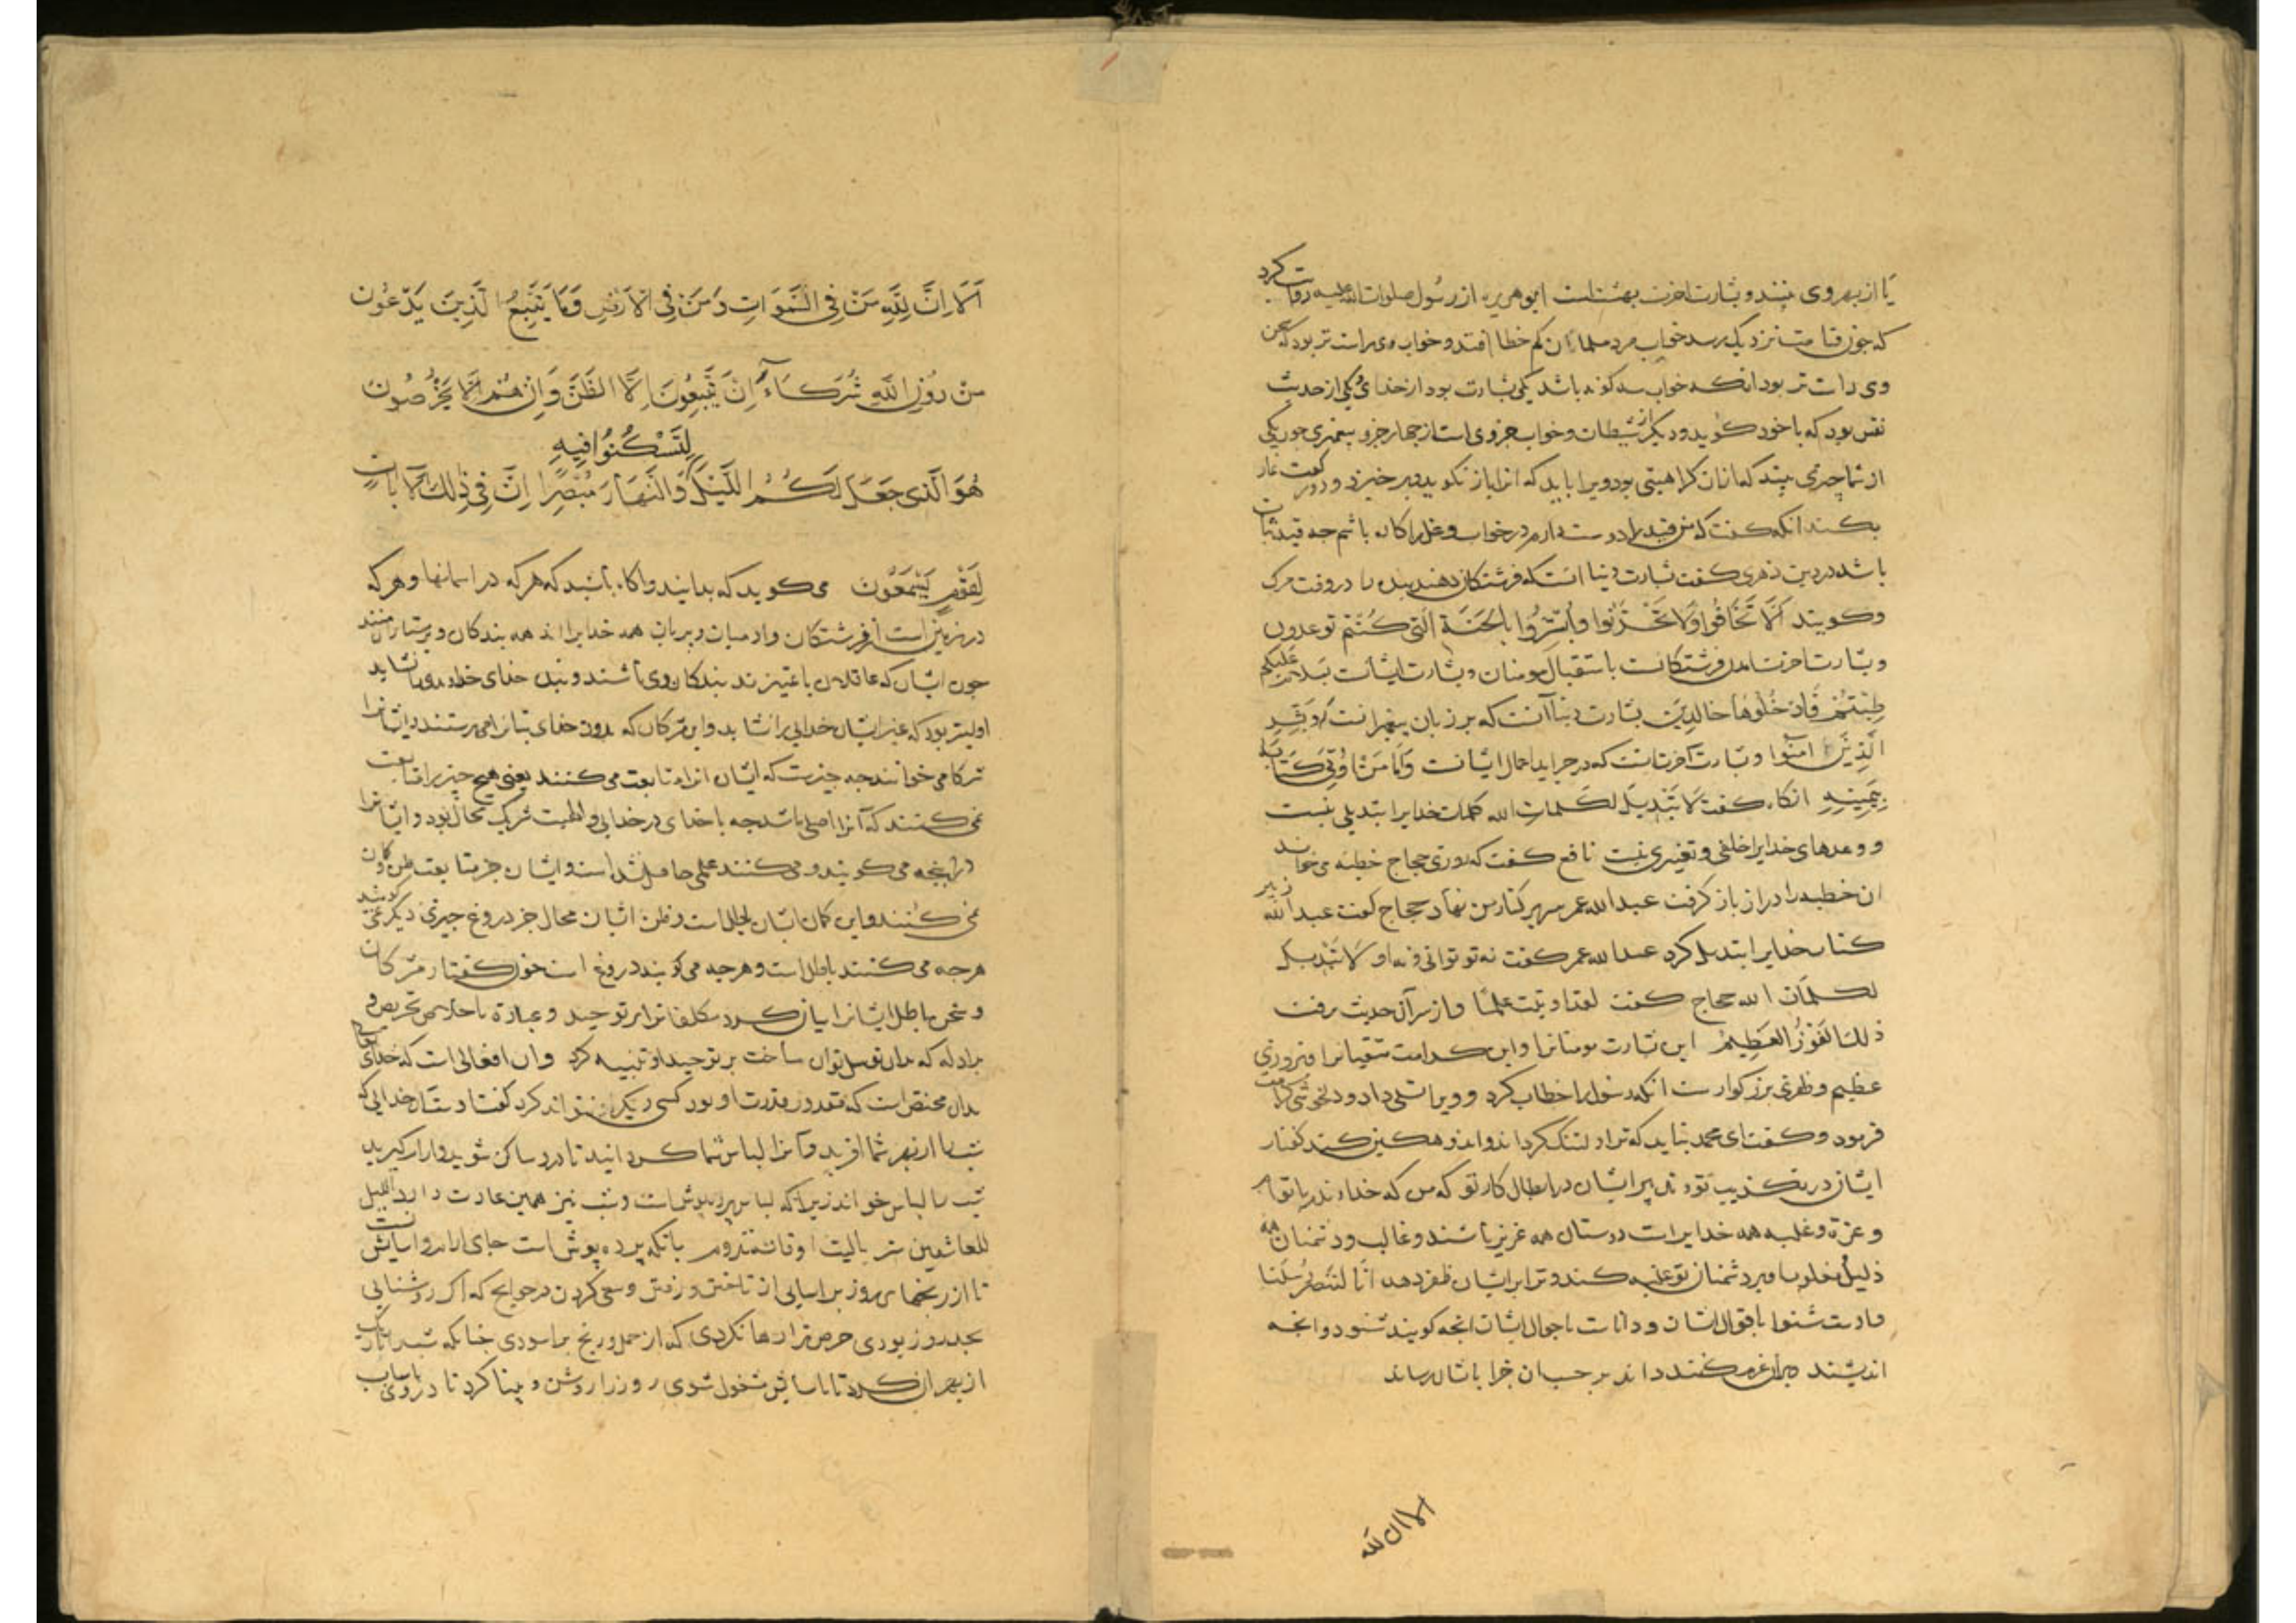 یا از بهر وی بینند و بشارت اخرت بهشتست ابوهریره از رسول صلوات الله علیه روایت کرد
که چون قیامت نزدیک رسد خواب مرد مسلمان کم خطا افتد و خواب وی راست تر بود که سخن
وی راست تر بود انکه خواب سه کونه باشد یکی بشارت بود از خدای یکی از حدیث
نفس بود که با خود کوید و دیکر از شیطان و خواب جزوی است از چهار جزو پیغمبری چون یکی
از شما چیزی بیند که ازان کراهیتی بود ویرا باید که انرا باز نکوید و برخیزد و دو رکعت نماز
بکند انکه کفت که من قید را دوست دارم در خواب و غل را کاره باشم چه قید ثبات
باشد در دین زهری کفت بشارت دنیا انست که فرشتکان دهند بنده را در وقت مرک
وکویند الا تخافوا ولا تحزنوا وابشروا بالجنة التی کنتم توعدون
و بشارت اخرت امدن فرشتکانست باستقبال مومنان و بشارت ایشانست بسلام علیکم
طبتم فادخلوها خالدین بشارت دنیا آنست که بر زبان پیغمبرانست وبشر
الذین امنوا و بشارت آخرت انست که در جراید اعمال ایشانست واما من اوتی کتابه
بیمینه انکاه کفت لا تبدیل لکلمات الله کلمات خدایرا تبدیلی نیست
و وعدهای خدایرا خلفی و تغییری نیست نافع کفت که روزی حجاج خطبه می خواند
ان خطبه را دراز باز کرفت عبدالله عمر سر بر کنار من نهاد حجاج کفت عبدالله زبیر
کتاب خدایرا تبدیل کرد عبدالله عمر کفت نه تو توانی و نه او لا تبدیل
لکلمات الله حجاج کفت لقد اوتیت علما و از سر آن حدیث برفت
ذلك الفوز العظیم این بشارت مومنانرا و این کرامت متقیانرا فیروزی
عظیم و ظفری بزرکوارست انکه رسول را خطاب کرد و ویرا تسلی داد و دلخوشی کرامت
فرمود و کفت ای محمد نباید که ترا دلتنک کرداند و اندوهکین کند کفتار
ایشان در تکذیب تو و تدبیر ایشان در ابطال کار تو که من که خداوندم با توام
و عزة و غلبه همه خدایراست دوستان همه عزیز باشند و غالب و دشمنان همه
ذلیل و مغلوب و بر دشمنان تو غلبه کند و ترا بر ایشان ظفر دهد انا لننصر رسلنا
و اوست شنوا باقوال ایشان و داناست باحوال ایشان انچه کویند شنود و انچه
اندیشند و بران عزم کنند داند بر حسب ان جزا بایشان رساند
الا ان لله
اَلَا اِنَّ لِلّٰهِ مَنْ فِی السَّمٰوَاتِ وَمَنْ فِی الْاَرْضِ وَمَا یَتَّبِعُ الَّذِینَ یَدْعُونَ
مِنْ دُونِ اللّٰهِ شُرَکَآءَ اِنْ یَتَّبِعُونَ اِلَّا الظَّنَّ وَاِنْ هُمْ اِلَّا یَخْرُصُونَ
لِتَسْکُنُوا فِیهِ
هُوَ الَّذِی جَعَلَ لَکُمُ اللَّیْلَ وَالنَّهَارَ مُبْصِرًا اِنَّ فِی ذٰلِكَ لَاٰیَاتٍ
لِقَوْمٍ یَسْمَعُونَ می کوید که بدانید و اکاه باشید که هر که در اسمانها و هر که
در زمین است از فرشتکان و ادمیان و پریان همه خدایرااند همه بندکان و پرستاران
چون ایشان که عاقلان با تمیزند بندکان وی باشند و بنده خدای خداوندی را نشاید
اولیتر بود که غیر ایشان خدایی را نشاید و این مشرکان که بدون خدای بتانرا می پرستند و ایشانرا
شرکا می خوانند چه چیزست که ایشان انرا متابعت می کنند یعنی هیچ چیز را متابعت
نمی کنند که آنرا اصلی باشد چه با خدای در خدایی و الهیت شریک محال بود و ایشانرا
درانچه می کویند و می کنند علمی حاصل نشدا ست و ایشان جز متابعت ظن و کمان
نمی کنند و این کمان ایشان باطل است و ظن ایشان محال جز دروغ چیزی دیکر نمی کویند
هرچه می کنند باطل است و هرچه می کویند دروغ است چون کفتار مشرکان
و سخن باطل ایشانرا بیان کرد مکلفانرا بر توحید و عبادة باخلاص تحریض
براد له که بدان توسل توان ساخت بر توحید او تنبیه کرد و ان افعالی است که خدای تعالی
بدان مختص است که مقدور قدرت او بود کسی دیکر ان نتواند کرد کفت اوست ان خدایی که
شب را از بهر شما افرید و آنرا لباس شما کردانید تا درو ساکن شوید و ارام کیرید
شب را لباس خواند زیرا که لباس پرده پوش است و شب نیز همین عادت دارد اللیل
للعاشقین ستر یا لیت اوقاته تدوم بانکه پرده پوش است جای ارام و اسایش است
تا از رنجهای روز براسایی از تاختن و رفتن و سعی کردن در حوایج که اکر روشنایی
بجد روز بودی حرص ترا رها نکردی که از حمل و رنج براسودی چنانکه شب را تاریک
از بهر ان کرد تا باسایش مشغول شوی روز را روشن و بینا کرد تا در وی باسباب